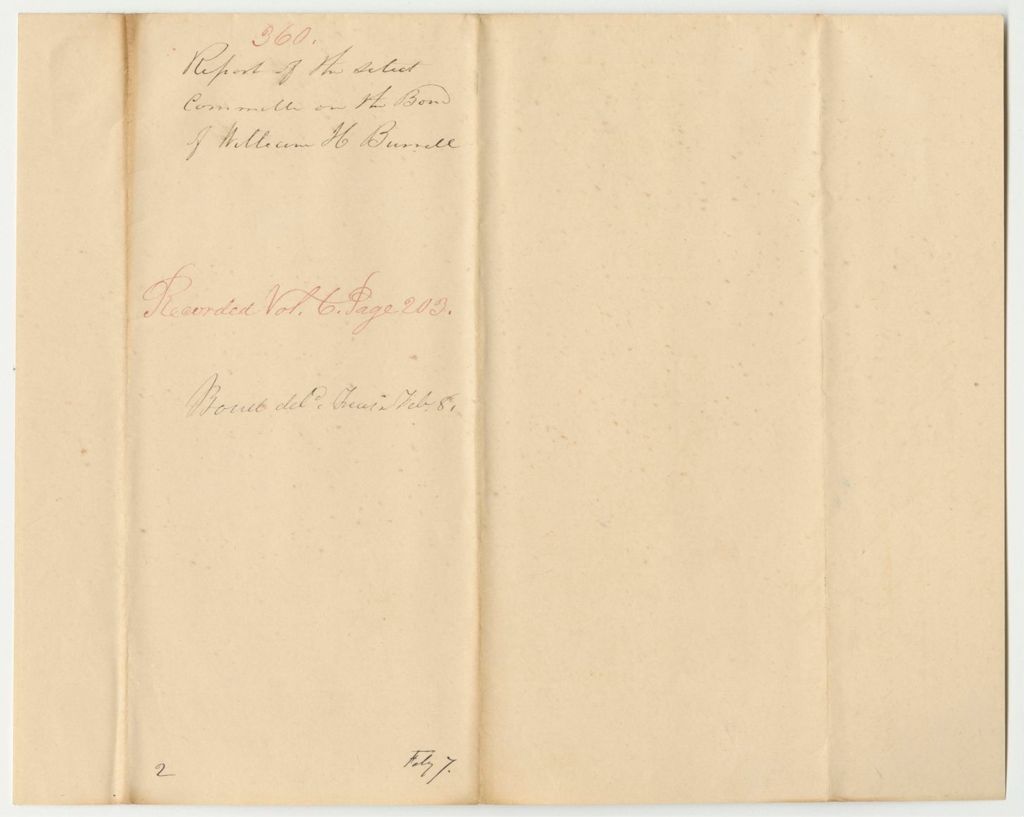 360.
Report of the select
Committe on the Bond
of William H Burrill
Recorded Vol. 6. Page 203.
Bond deld. Treasr Feb. 8.
2
Feby 7.